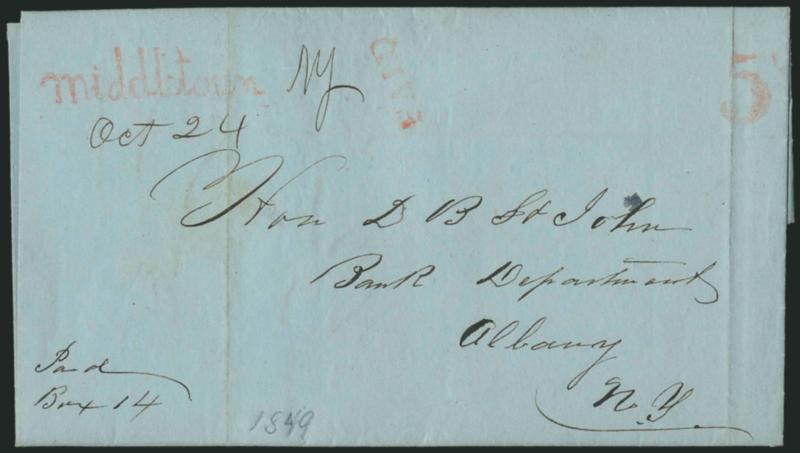 Middletown NY 5
Oct 24
Hon D B St John
Bank Department
Albany
N.Y.
Paid
Box 14
1849